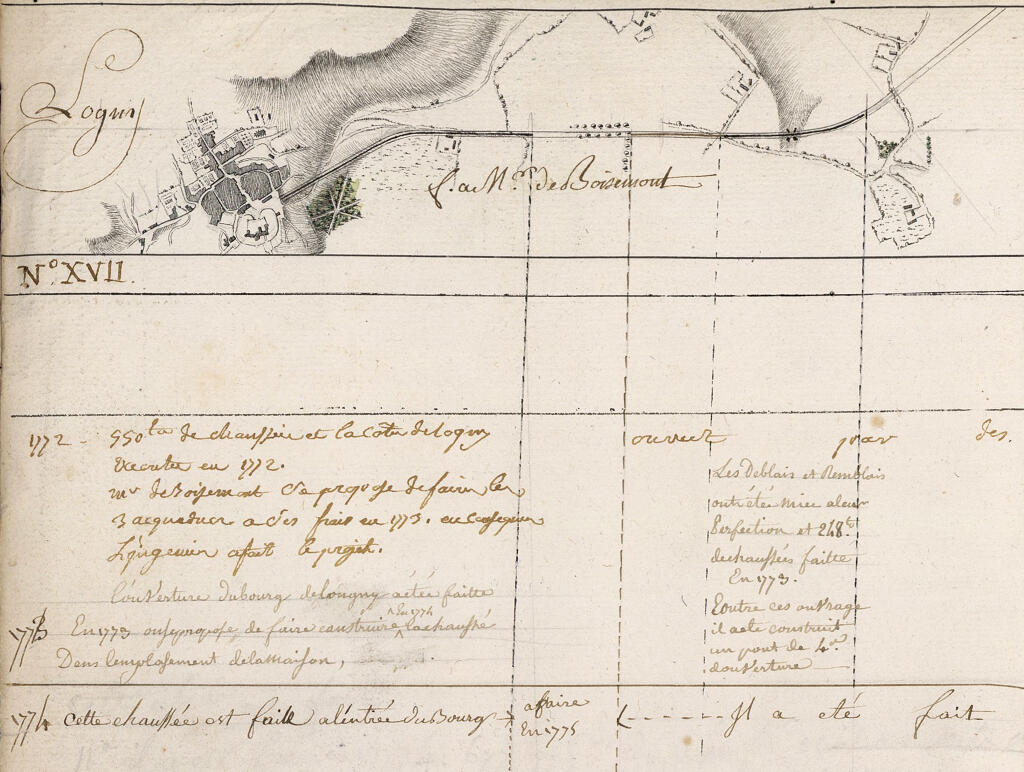 Le
Logny
P. a Mr. de Boisemont
No. XVII.
1772 - 550 tes de chaussée et la côte de Logny ouvert par des
Executée en 1772.
mr de Boisemont se propose de faire les
3 acqueducs a ses frais en 1773. en conséquence
L'ingenieur a fait le projet.
Les Deblais et Remblais
ont étée mise a leur
Perfection et 248. t
de chaussées faitte
En 1773.
Eoutre ces ouvrage
il a ete construit
un pont de 4.
d'ouverture
l'ouverture du bourg de longny a étée faitte
1773 En 1773 on se propose, de faire construire ^En 1774 la chaussée
Dans l'emplasement de la maison,
1774 cette chaussée est faitte a l'entrée du Bourg affaire
En 1775
Il a eté fait